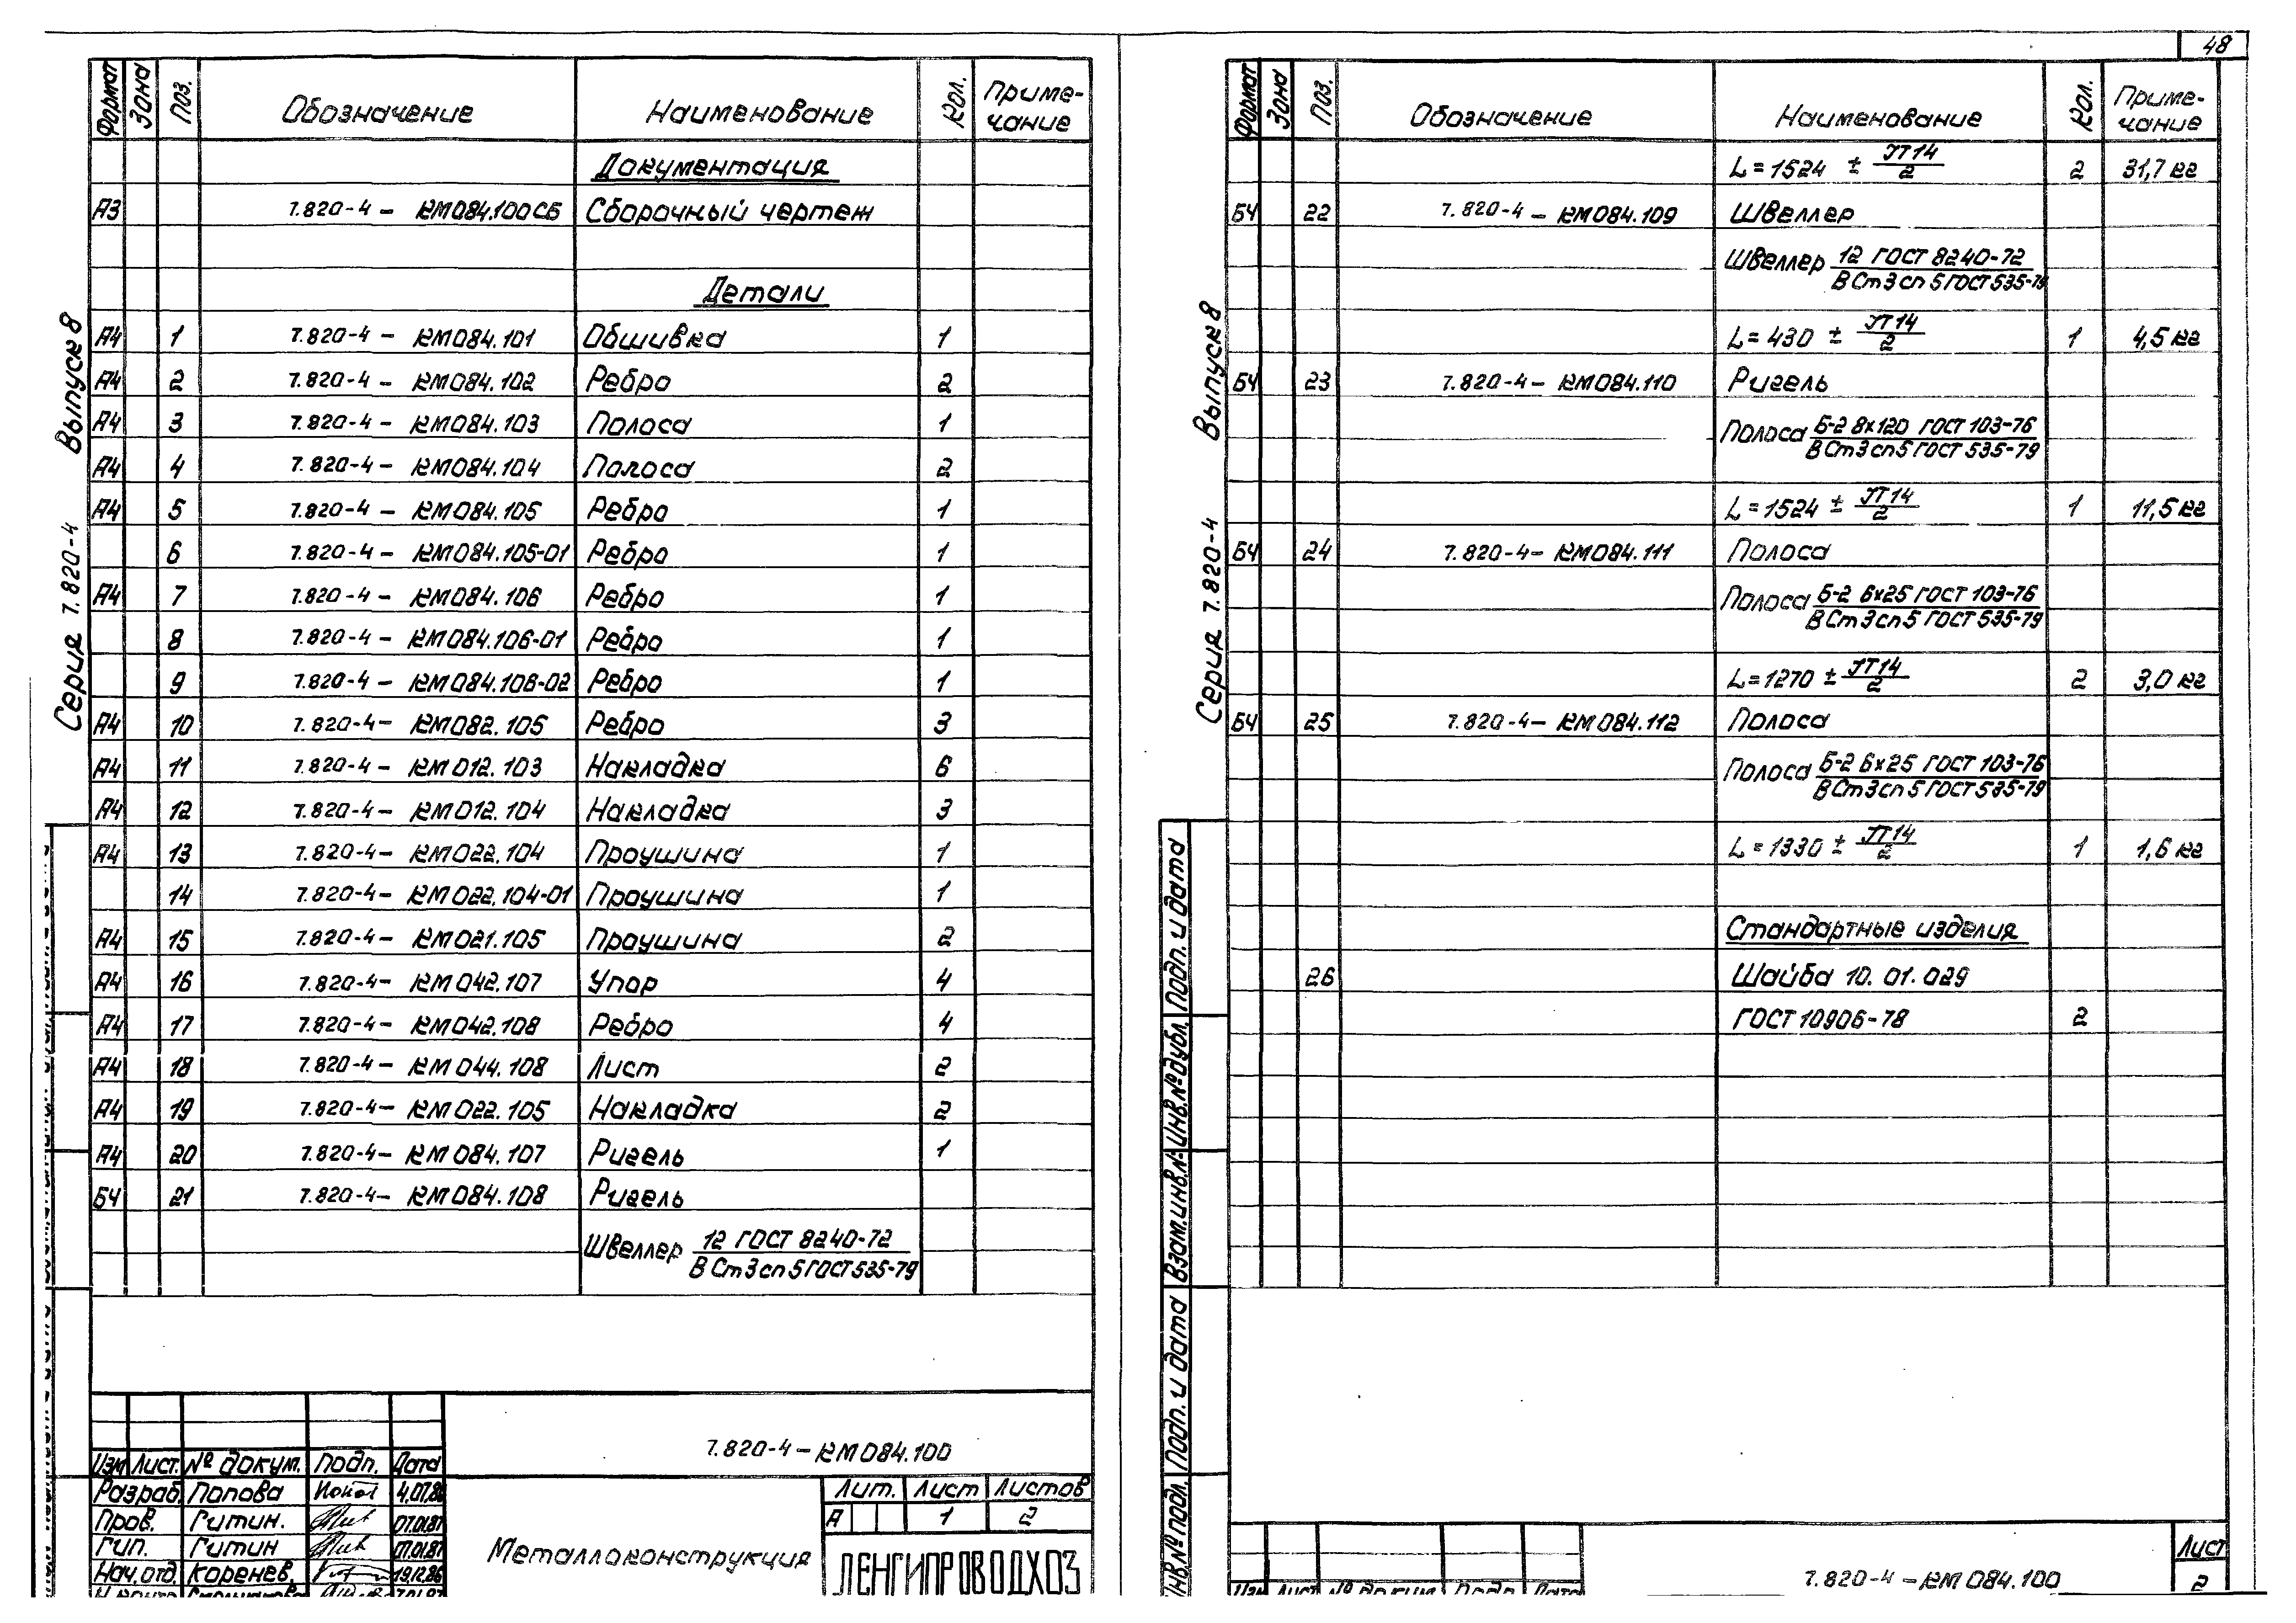 48
Серия 7.820-4 Выпуск 8
Формат Зона Поз. Обозначение Наименование Кол. Приме-
чание
Документация
А3 7.820-4 - КМ084.100СБ Сборочный чертеж
Детали
А4 1 7.820-4 - КМ084.101 Обшивка 1
А4 2 7.820-4 - КМ084.102 Ребро 2
А4 3 7.820-4 - КМ084.103 Полоса 1
А4 4 7.820-4 - КМ084.104 Полоса 2
А4 5 7.820-4 - КМ084.105 Ребро 1
6 7.820-4 - КМ084.105-01 Ребро 1
А4 7 7.820-4 - КМ084.106 Ребро 1
8 7.820-4 - КМ084.106-01 Ребро 1
9 7.820-4 - КМ084.106-02 Ребро 1
А4 10 7.820-4 - КМ082.105 Ребро 3
А4 11 7.820-4 - КМ012.103 Накладка 6
А4 12 7.820-4 - КМ012.104 Накладка 3
А4 13 7.820-4 - КМ022.104 Проушина 1
14 7.820-4 - КМ022.104-01 Проушина 1
А4 15 7.820-4 - КМ021.105 Проушина 2
А4 16 7.820-4 - КМ042.107 Упор 4
А4 17 7.820-4 - КМ042.108 Ребро 4
А4 18 7.820-4 - КМ044.108 Лист 2
А4 19 7.820-4 - КМ022.105 Накладка 2
А4 20 7.820-4 - КМ084.107 Ригель 1
БЧ 21 7.820-4 - КМ084.108 Ригель
Швеллер 12 ГОСТ 8240-72
В Ст3сп5 ГОСТ 535-79
7.820-4 - КМ084.100
Изм Лист. № докум. Подп. Дата
Разраб. Попова 4.07.86
Пров. Гитин. 07.01.87
Гип. Гитин 07.01.87
Нач.отд. Коренев. 19.12.86
Металлоконструкция
Лит. Лист Листов
А 1 2
ЛЕНГИПРОВОДХОЗ
Серия 7.820-4 Выпуск 8
Формат Зона Поз. Обозначение Наименование Кол. Приме-
чание
L=1524 ± JT14/2 2 31,7 кг
БЧ 22 7.820-4 - КМ084.109 Швеллер
Швеллер 12 ГОСТ 8240-72
В Ст3сп5 ГОСТ 535-79
L=430 ± JT14/2 1 4,5 кг
БЧ 23 7.820-4 - КМ084.110 Ригель
Полоса Б-2 8х120 ГОСТ 103-76
В Ст3сп5 ГОСТ 535-79
L=1524 ± JT14/2 1 11,5 кг
БЧ 24 7.820-4 - КМ084.111 Полоса
Полоса Б-2 6х25 ГОСТ 103-76
В Ст3сп5 ГОСТ 535-79
L=1270 ± JT14/2 2 3,0 кг
БЧ 25 7.820-4 - КМ084.112 Полоса
Полоса Б-2 6х25 ГОСТ 103-76
В Ст3сп5 ГОСТ 535-79
L=1330 ± JT14/2 1 1,6 кг
Стандартные изделия
26 Шайба 10.01.029
ГОСТ 10906-78 2
Инв.№ подл. Подп. и дата Взам.инв.№ Инв.№ дубл. Подп. и дата
Изм Лист № докум. Подп. Дата
7.820-4 - КМ084.100
Лист
2